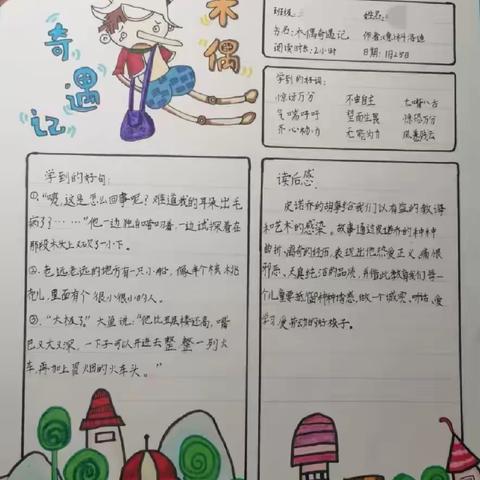 木偶
奇遇记
班级:
姓名:
书名:木偶奇遇记
作者:
阅读时长:2小时
日期:1月25日
学到的好词:
惊讶万分 不由自主 七嘴八舌
气喘吁吁 望而生畏 惊慌万分
齐心协力 无能为力
学到的好句:
①."咦,这是怎么回事呢?难道我的耳朵出毛
病了?……"他一边独自嘀咕着,一边试探着在
那段木头上又砍了一小下。
②.老远老远的地方有一只小船,像半个核桃
壳儿,里面有个很小很小的人。
③."太极了。"大鱼说:"他比五层楼还高,嘴
巴又大又深,一下子可以开进去整整一列火
车,再加上冒烟的火车头。"
读后感.
皮诺乔的故事给我们以有益的教诲
和艺术的感染。故事通过皮诺乔的种种
曲折、离奇的经历,表现出他热爱正义,痛恨
邪恶,天真纯洁的品质,并借此教育我们每一
个儿童要抵种种诱惑,做一个诚实、听话、爱
学习,爱劳动的好孩子。